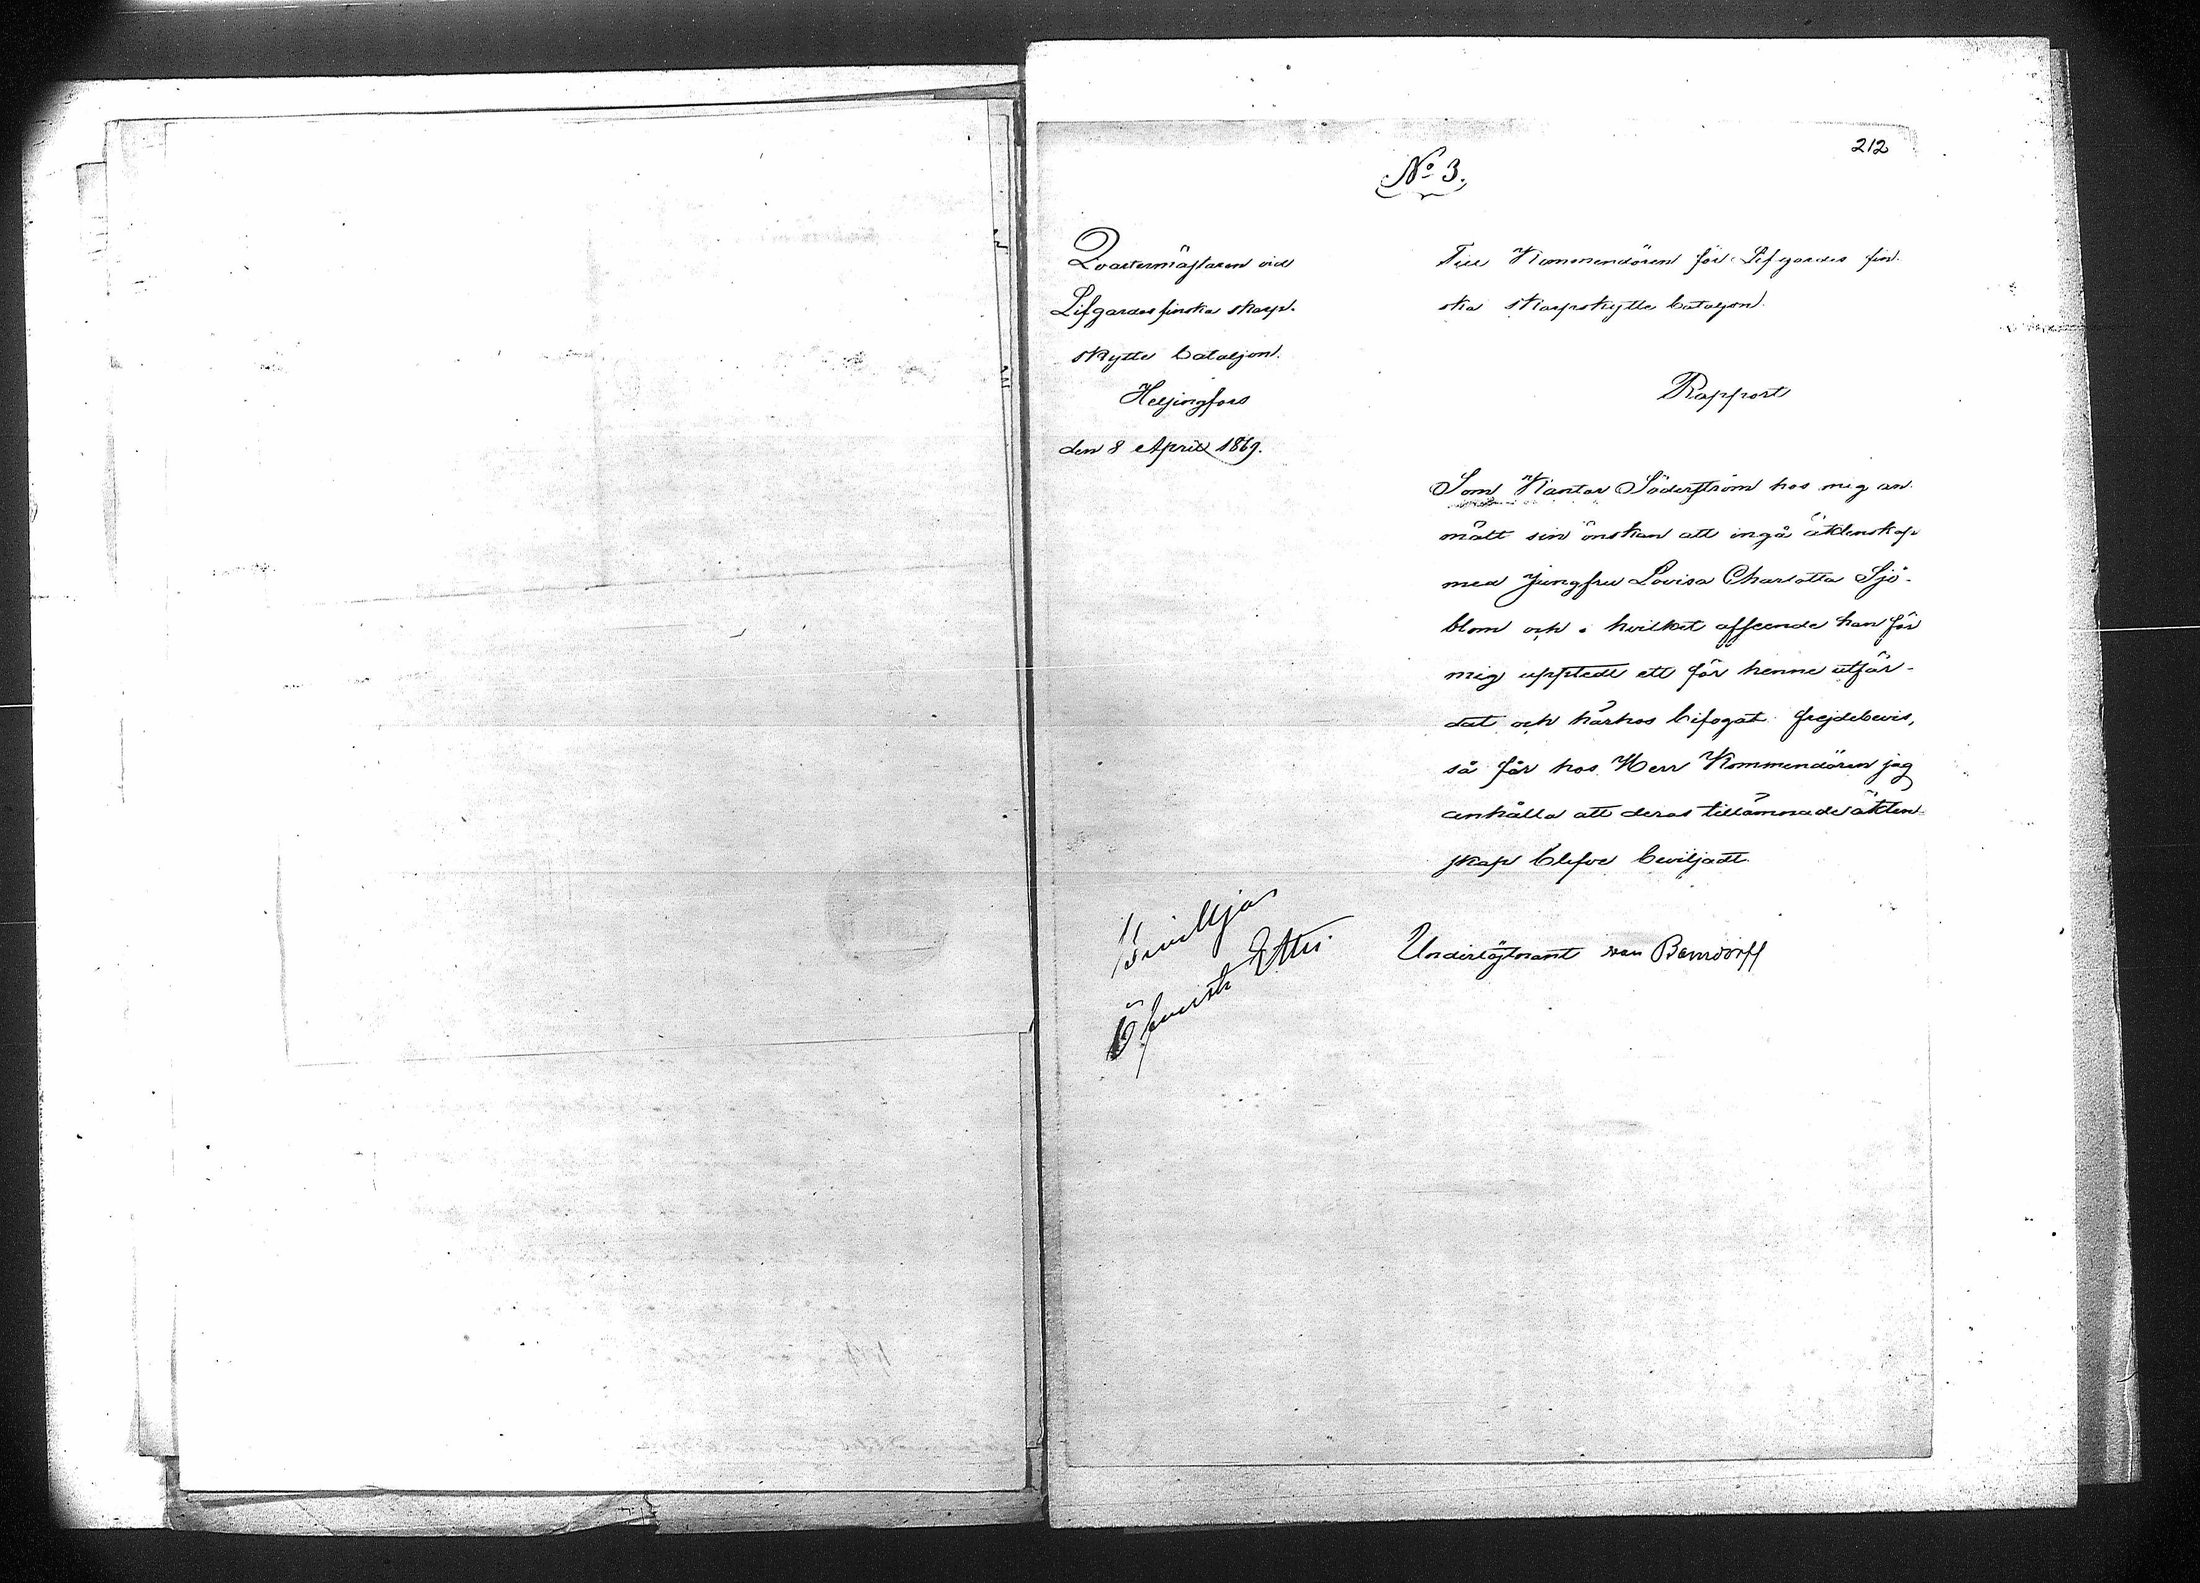 212
No 3.
Qvartermästaren vid
Lifgardes finska skarp-
skytte bataljon.
Helsingfors
den 8 April 1869.
Till Kommendören för Lifgardes fin-
ska skarpskytte bataljon.
Rapport
Som Kantor Söderström hos mig an-
mält sin önskan att ingå äktenskap
med Jungfru Lovisa Charlotta Sjö-
blom och i hvilket afseende han för
mig upptedt ett för henne utfär-
dat och härhos bifogat frejdebevis,
så får hos Herr Kommendören jag
anhålla att deras tillämnade äkten-
skap blefve beviljadt.
Underlöjtnant von
Bevilljas
Öfverste Etter.